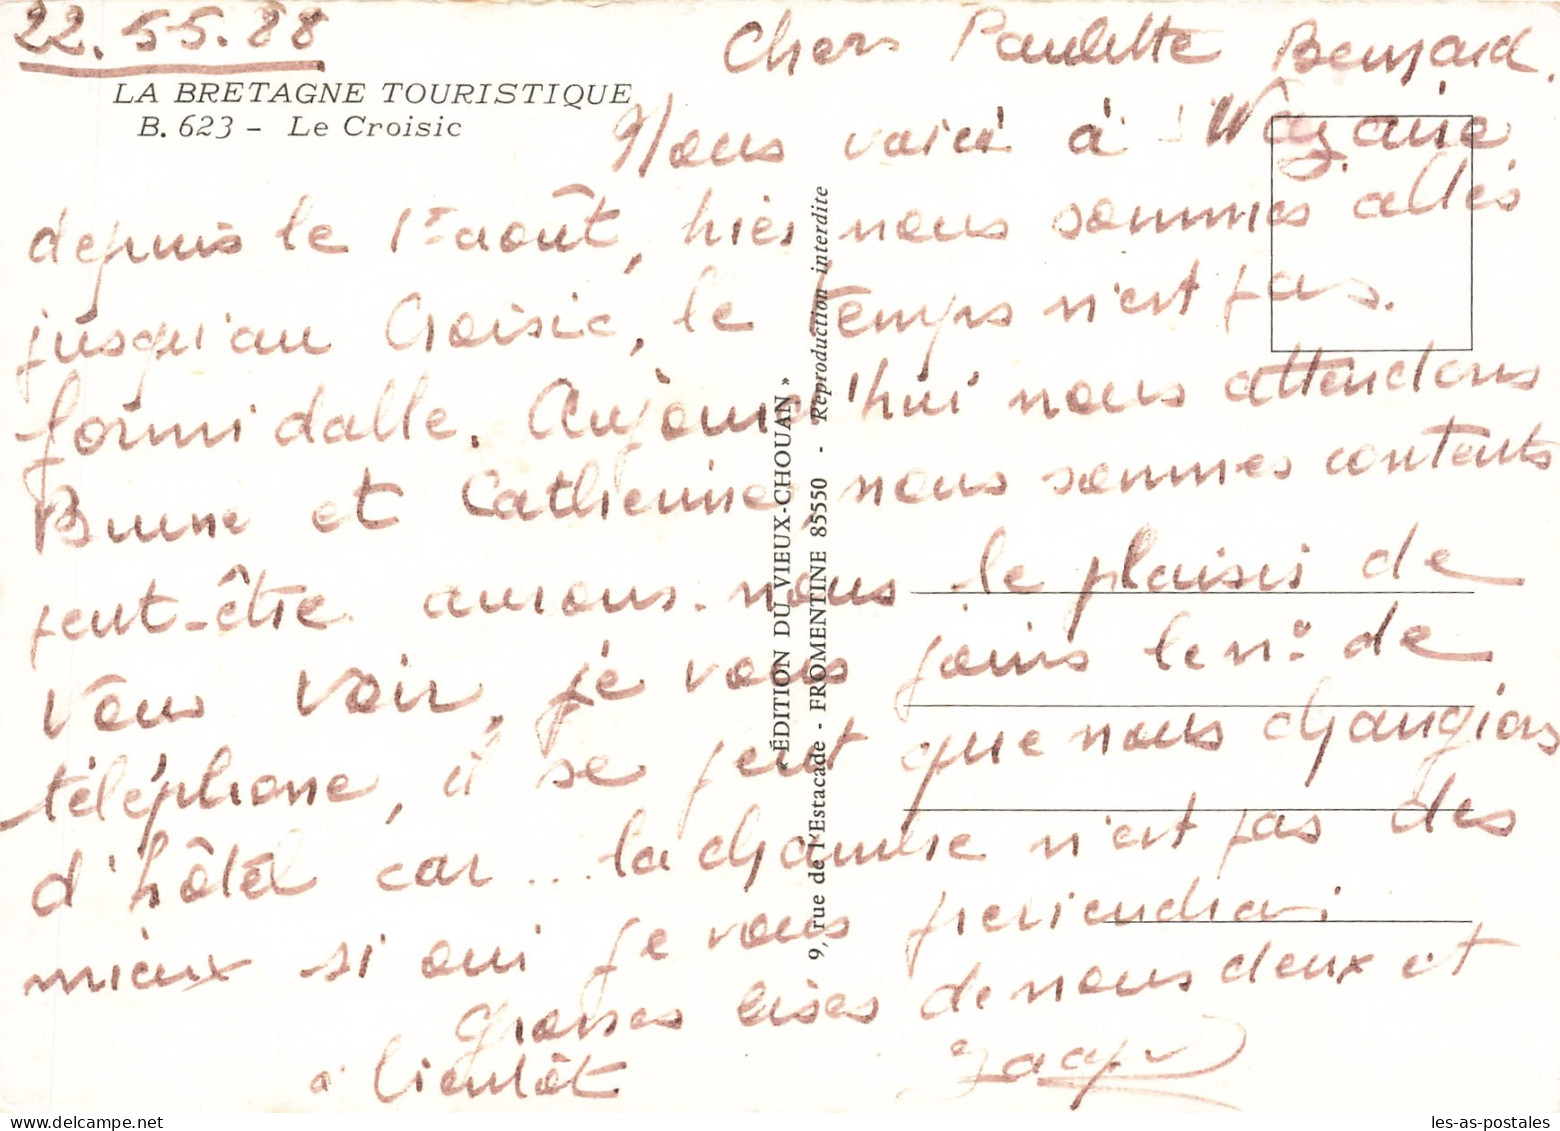 22.55.88
LA BRETAGNE TOURISTIQUE
B. 623 - Le Croisic
Chers Paulette Bernard.
Nous voici à Nazaire
depuis le 1er août, hier nous sommes allés
jusqu'au Croisic, le temps n'est pas.
formidalle. Aujourd'hui nous attendons
Brune et Catherine, nous sommes contents
peut-être aurons-nous le plaisir de
vous voir, je vous joins le n° de
téléphone, il se peut que nous changions
d'hôtel car ... la chambre n'est pas des
mieux si oui je vous previendrai
Grosses bises de nous deux et
à bientôt
ÉDITION DU VIEUX-CHOUAN »
9, rue de l'Estacade - FROMENTINE 85550 - Reproduction interdite
les-as-postales